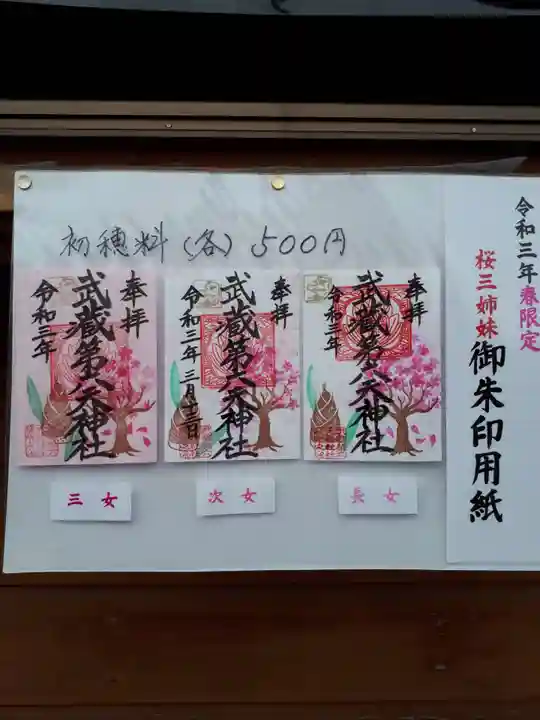 令和三年春限定
桜三姉妹
御朱印用紙
初穂料(各)500円
奉拝
武蔵第六天神社
令和三年
長女
奉拝
武蔵第六天神社
令和三年三月十二日
次女
奉拝
武蔵第六天神社
令和三年
三女